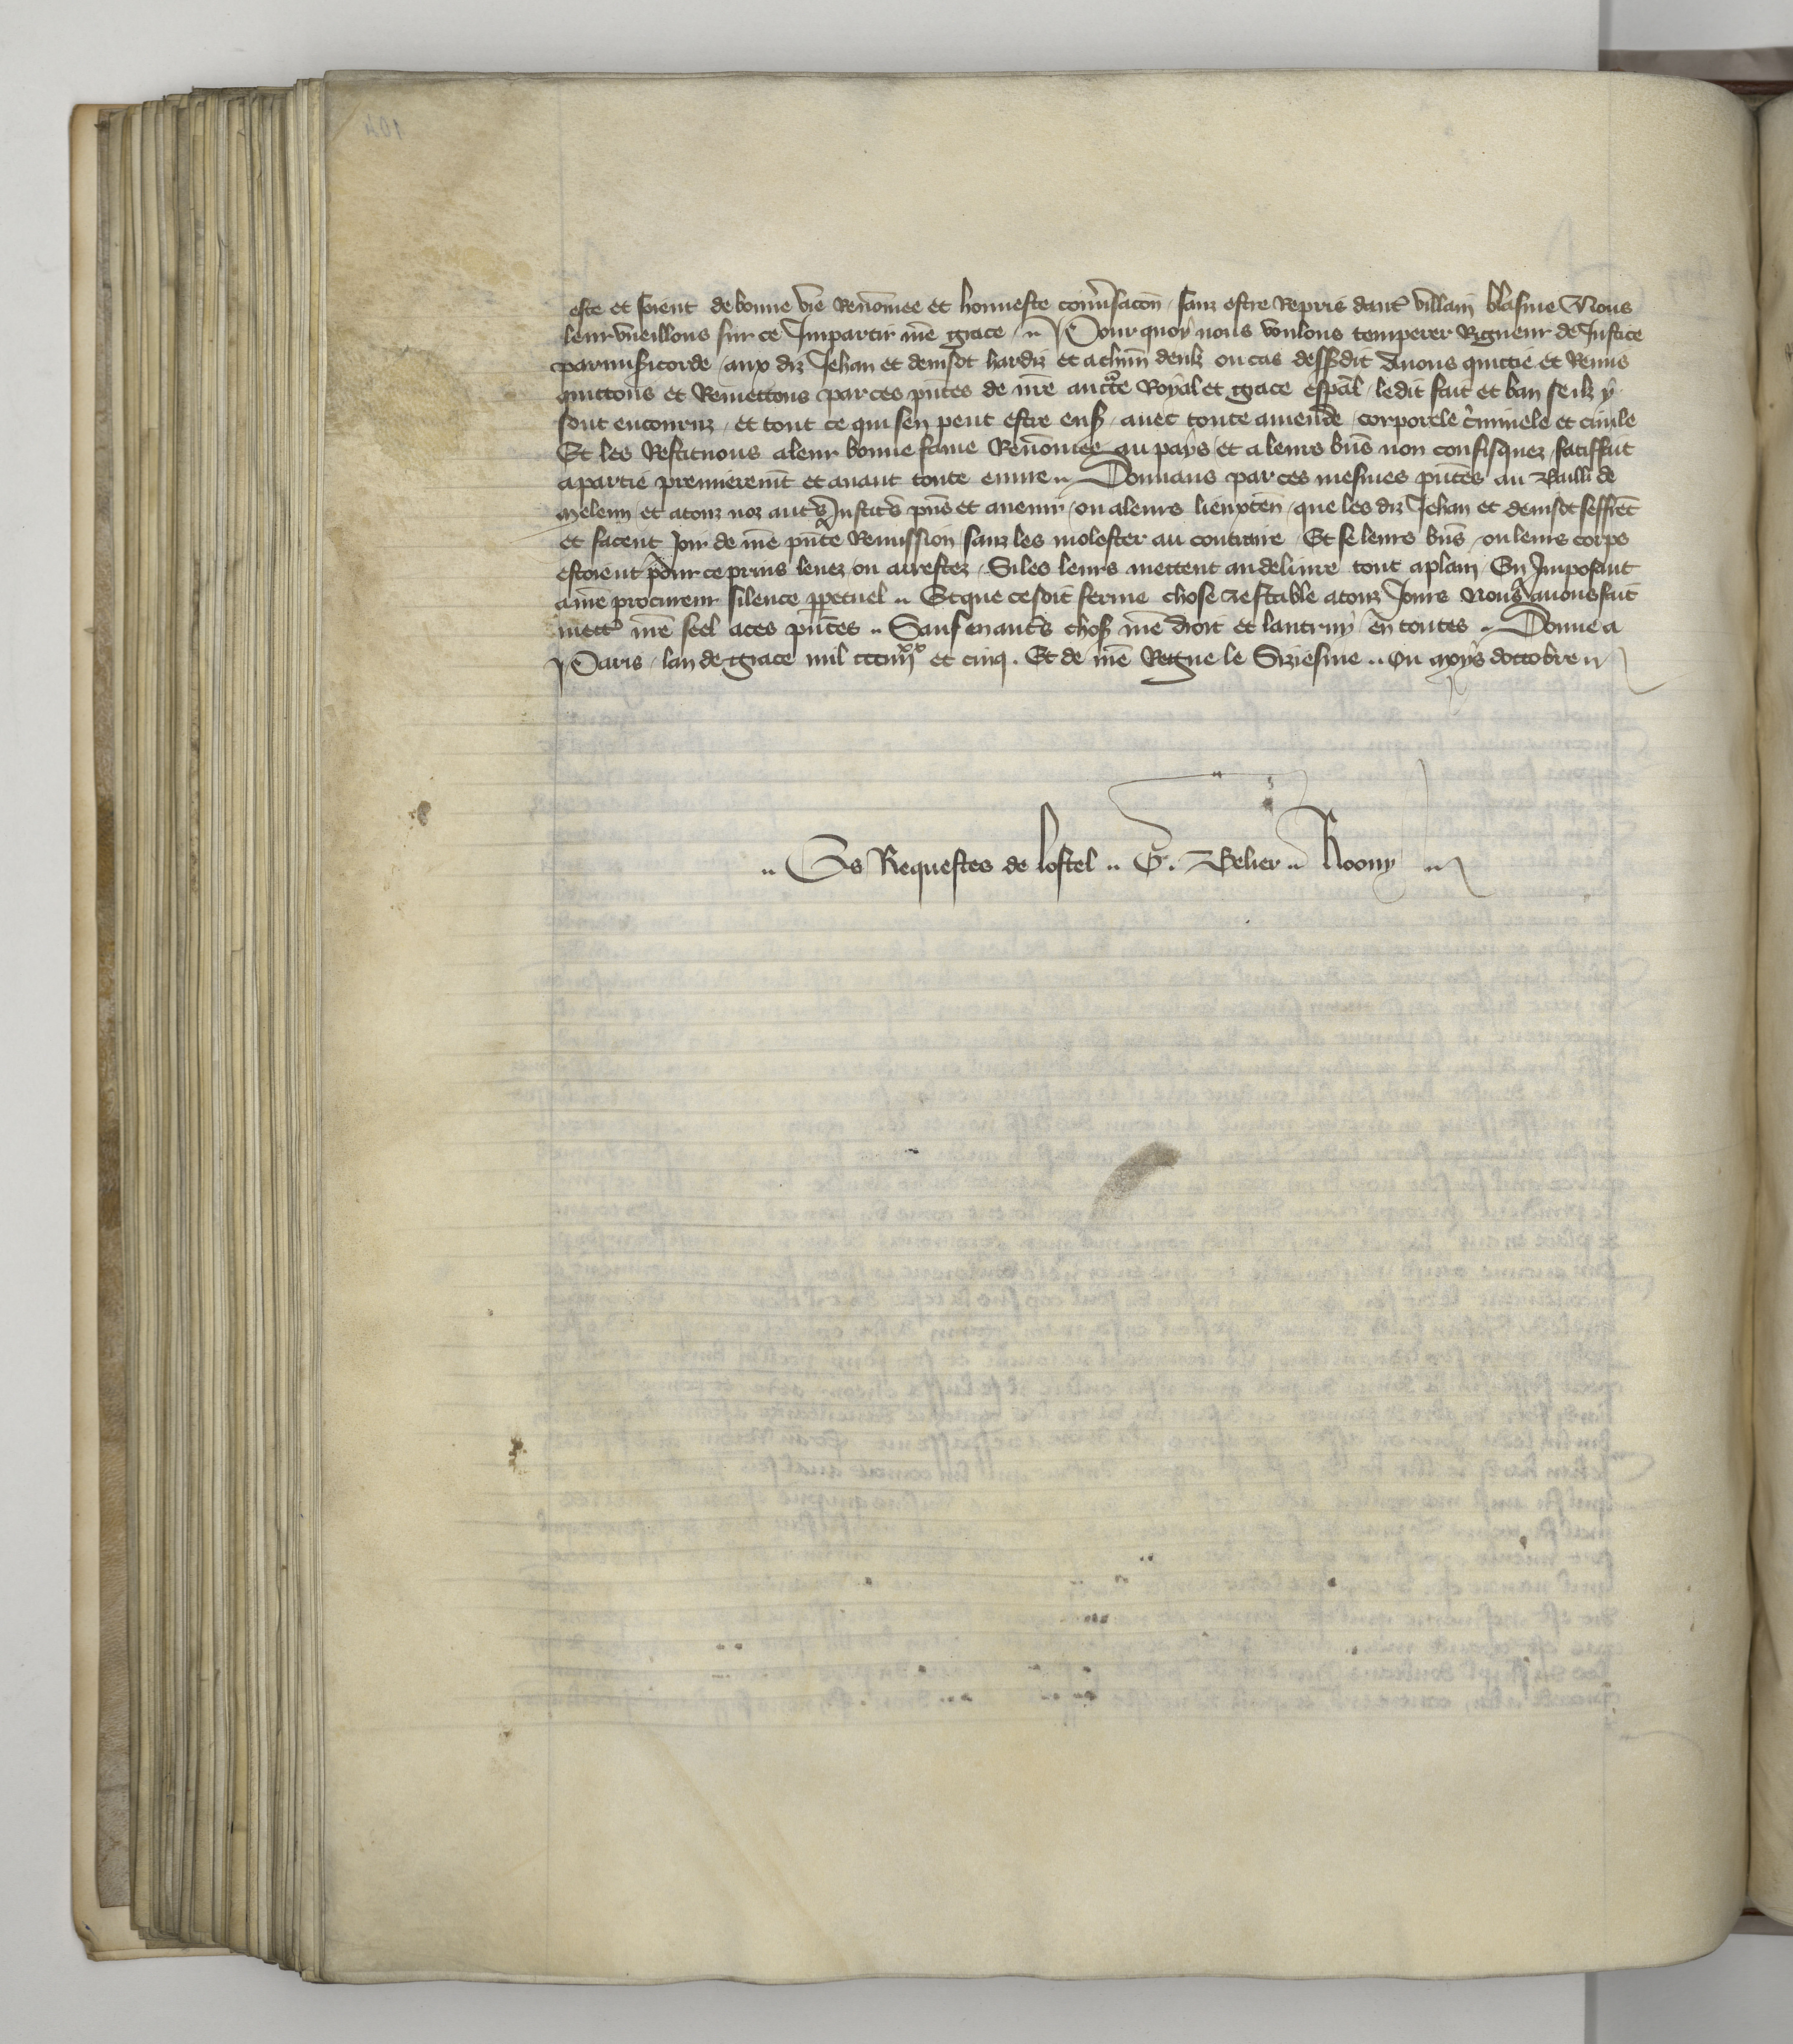 este et soient de bonne vie renõmee et honneste conũsacõn / sanz estre repris dautͥ villain blasme Nous
leur vueillons sur ce Impartir nr̃e grace / .. Pour quoy nous voulons temperer rigueur de Justice
par misicorde / aux diz Jehan et denisot hardiz et a chũn deulz ou cas dessusdit Avons quittie et Remis
quittons et Remettons par ces pñtes de nr̃e auctte Royal et grace esp̃al / ledit fait et ban se ilz y
sont encouruz / et tout ce qui sen peut estre ensͥ / avec toute amende / corporele c̾minele et civile
Et les Restituons a leur bonne fame Renõmee au pays / et a leurs biẽs non confisquez / satiffait
a partie premieremt̃ et avant toute euvre .. Donnans par ces mesmes pñtes au Bailli de
Meleun / et a touz noz autr̃s Justic̃s pñs et avenir / ou a leurs lieuxten̄ / que les diz Jehan et denisot seffr̃ẽt
et facent Joir de nr̃e pñte Remission sanz les molester au contraire / Et se leurs biẽs / ou leurs corps
estoient pour ce prins levez ou arrestez / Si les leurs mettent au delivre tout a plain / En Imposant
a nr̃e procureur silence p̱petuel .. Et que ce soit ferme chose et estable a touz Jours Nous avons fait
mettͥ nr̃e seel a ces pñtes .. Sauf en autr̃s chosͥ nr̃e droit et lautruy en toutes .. Donne a
Paris / lan de grace mil ccciiiixx et cinq . Et de nr̃e Regne le Siziesme .. ou moys doctobre ..
.. Es Requestes de lostel .. G. Belier .. Roony ..